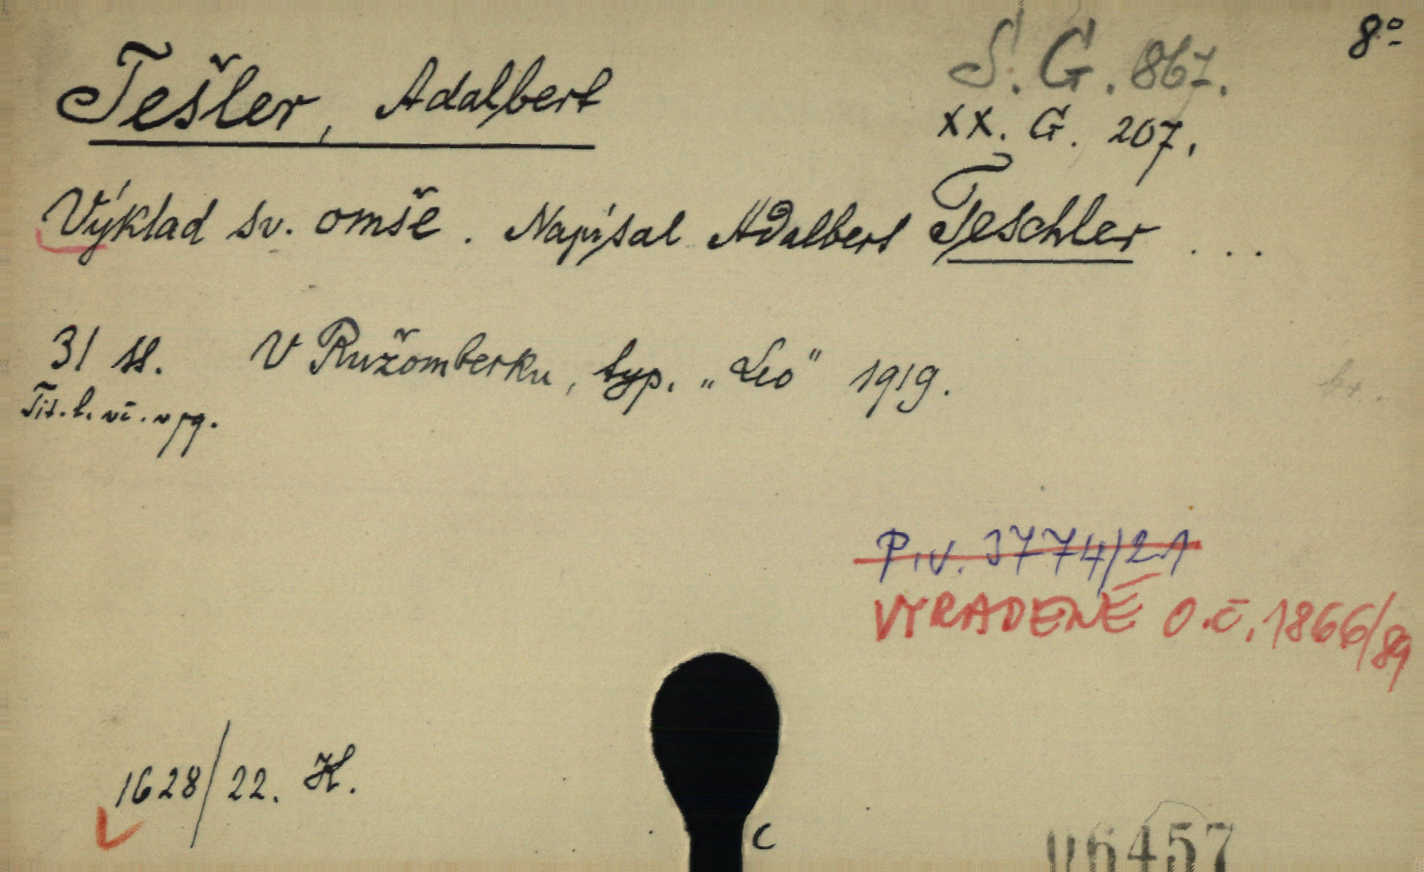 8°
S. G. 867.
Tešler, Adalbert
XX. G. 207.
Výklad sv. omše. Napísal Adalbert Teschler ...
31 ss. V Ružomberku, typ. „Leo" 1919.
Tit. l. vč. v pg.
P.iv. 3774/21
VYRADENÉ O.č. 1866/89
1628/22. H.
C
06457